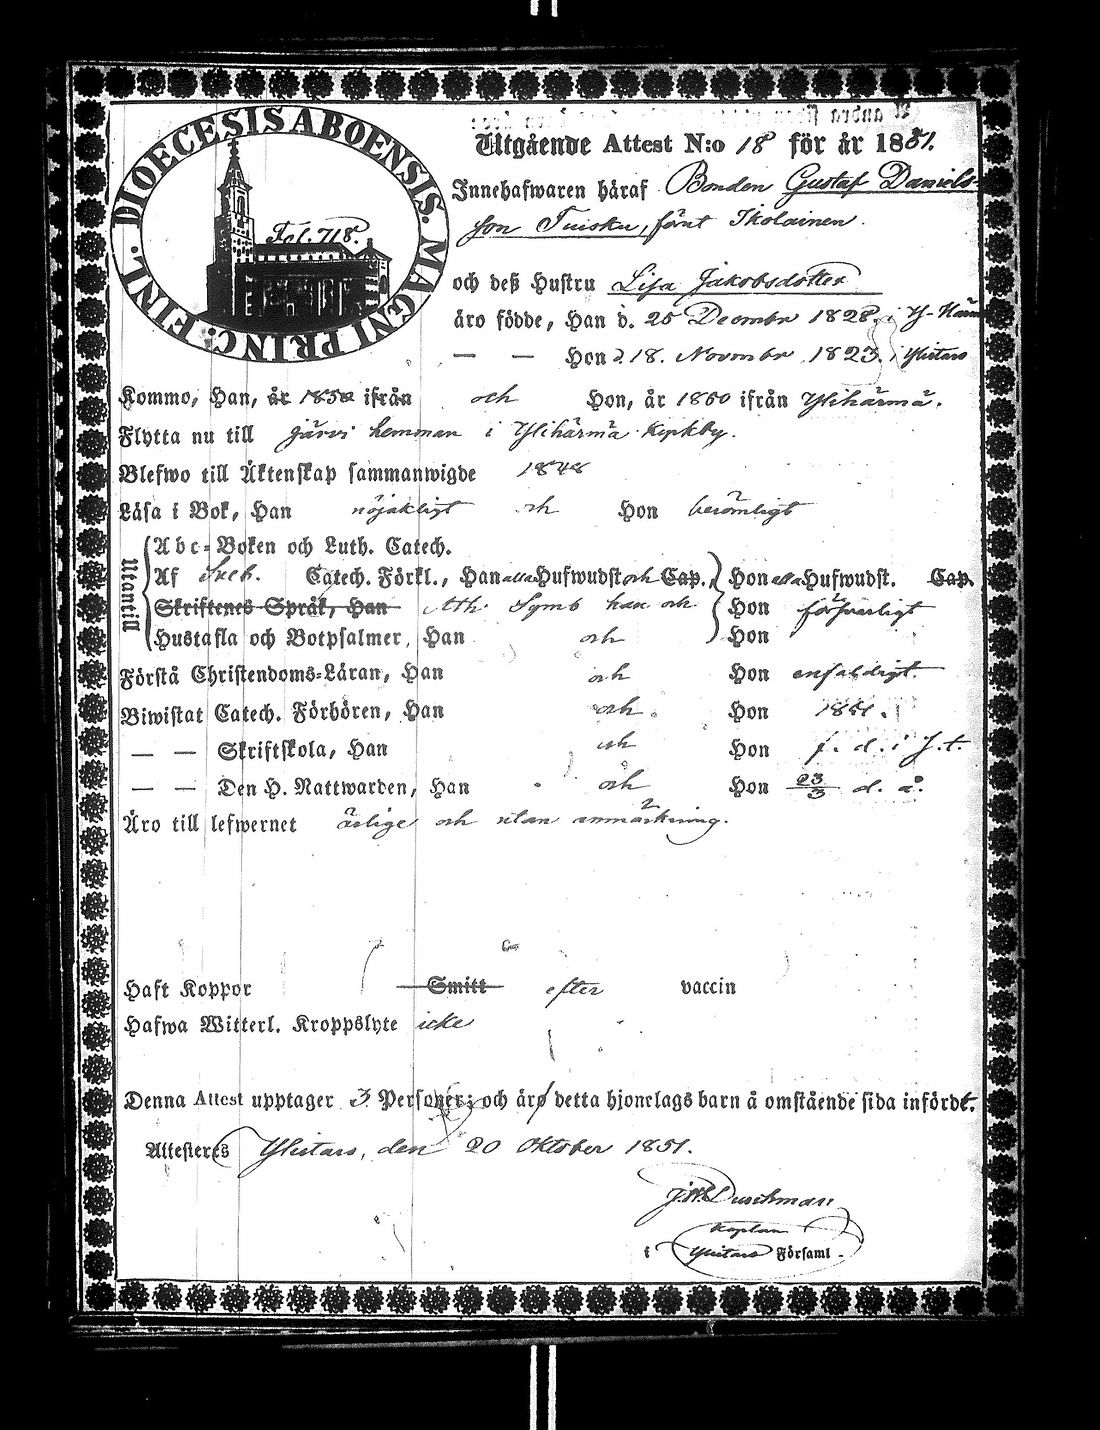 DIOECESIS ABOENSIS. MAGNI PRINC: FINL.
Fol. 718.
Utgående Attest N:o 18 för år 1851.
Innehafwaren häraf Bonden Gustaf Daniels-
son Tuisku, förut Ikolainen.
och deß Hustru Lisa Jakobsdotter
äro födde, Han d. 25 Decembr 1828. i Y-Härm
— — Hon d. 18. Novembr 1823. i Ylistaro
Kommo, Han, år 1850 ifrån och Hon, år 1850 ifrån Ylihärmä.
Flytta nu till Järvi hemman i Ylihärmä Kyrkby.
Blefwo till Äktenskap sammanwigde 1848
Läsa i Bok, Han nöjaktigt och Hon berömligt
Utantill
Abc-Boken och Luth. Catech.
Af Sveb. Catech. Förkl., Han alla Hufwudst. och Cap., Hon alla Hufwudst. Cap.
Skriftenes Språk, Han Ath. Symb han och Hon försvarligt
Hustafla och Botpsalmer, Han och Hon
Förstå Christendoms-Läran, Han och Hon enfaldigt.
Biwistat Catech. Förhören, Han och Hon 1851.
— — Skriftskola, Han och Hon f. d. i J. t.
— — Den H. Nattwarden, Han och Hon 23/3 d. å.
Äro till lefwernet ärlige och utan anmärkning.
Haft Koppor Smitt efter vaccin
Hafwa Witterl. Kroppslyte icke
Denna Attest upptager 3 Personer; och äro detta hjonelags barn å omstående sida införde.
Attesteres Ylistaro, den 20 Oktober 1851.
Durchman
Kaplan
i Ylistaro Församl.